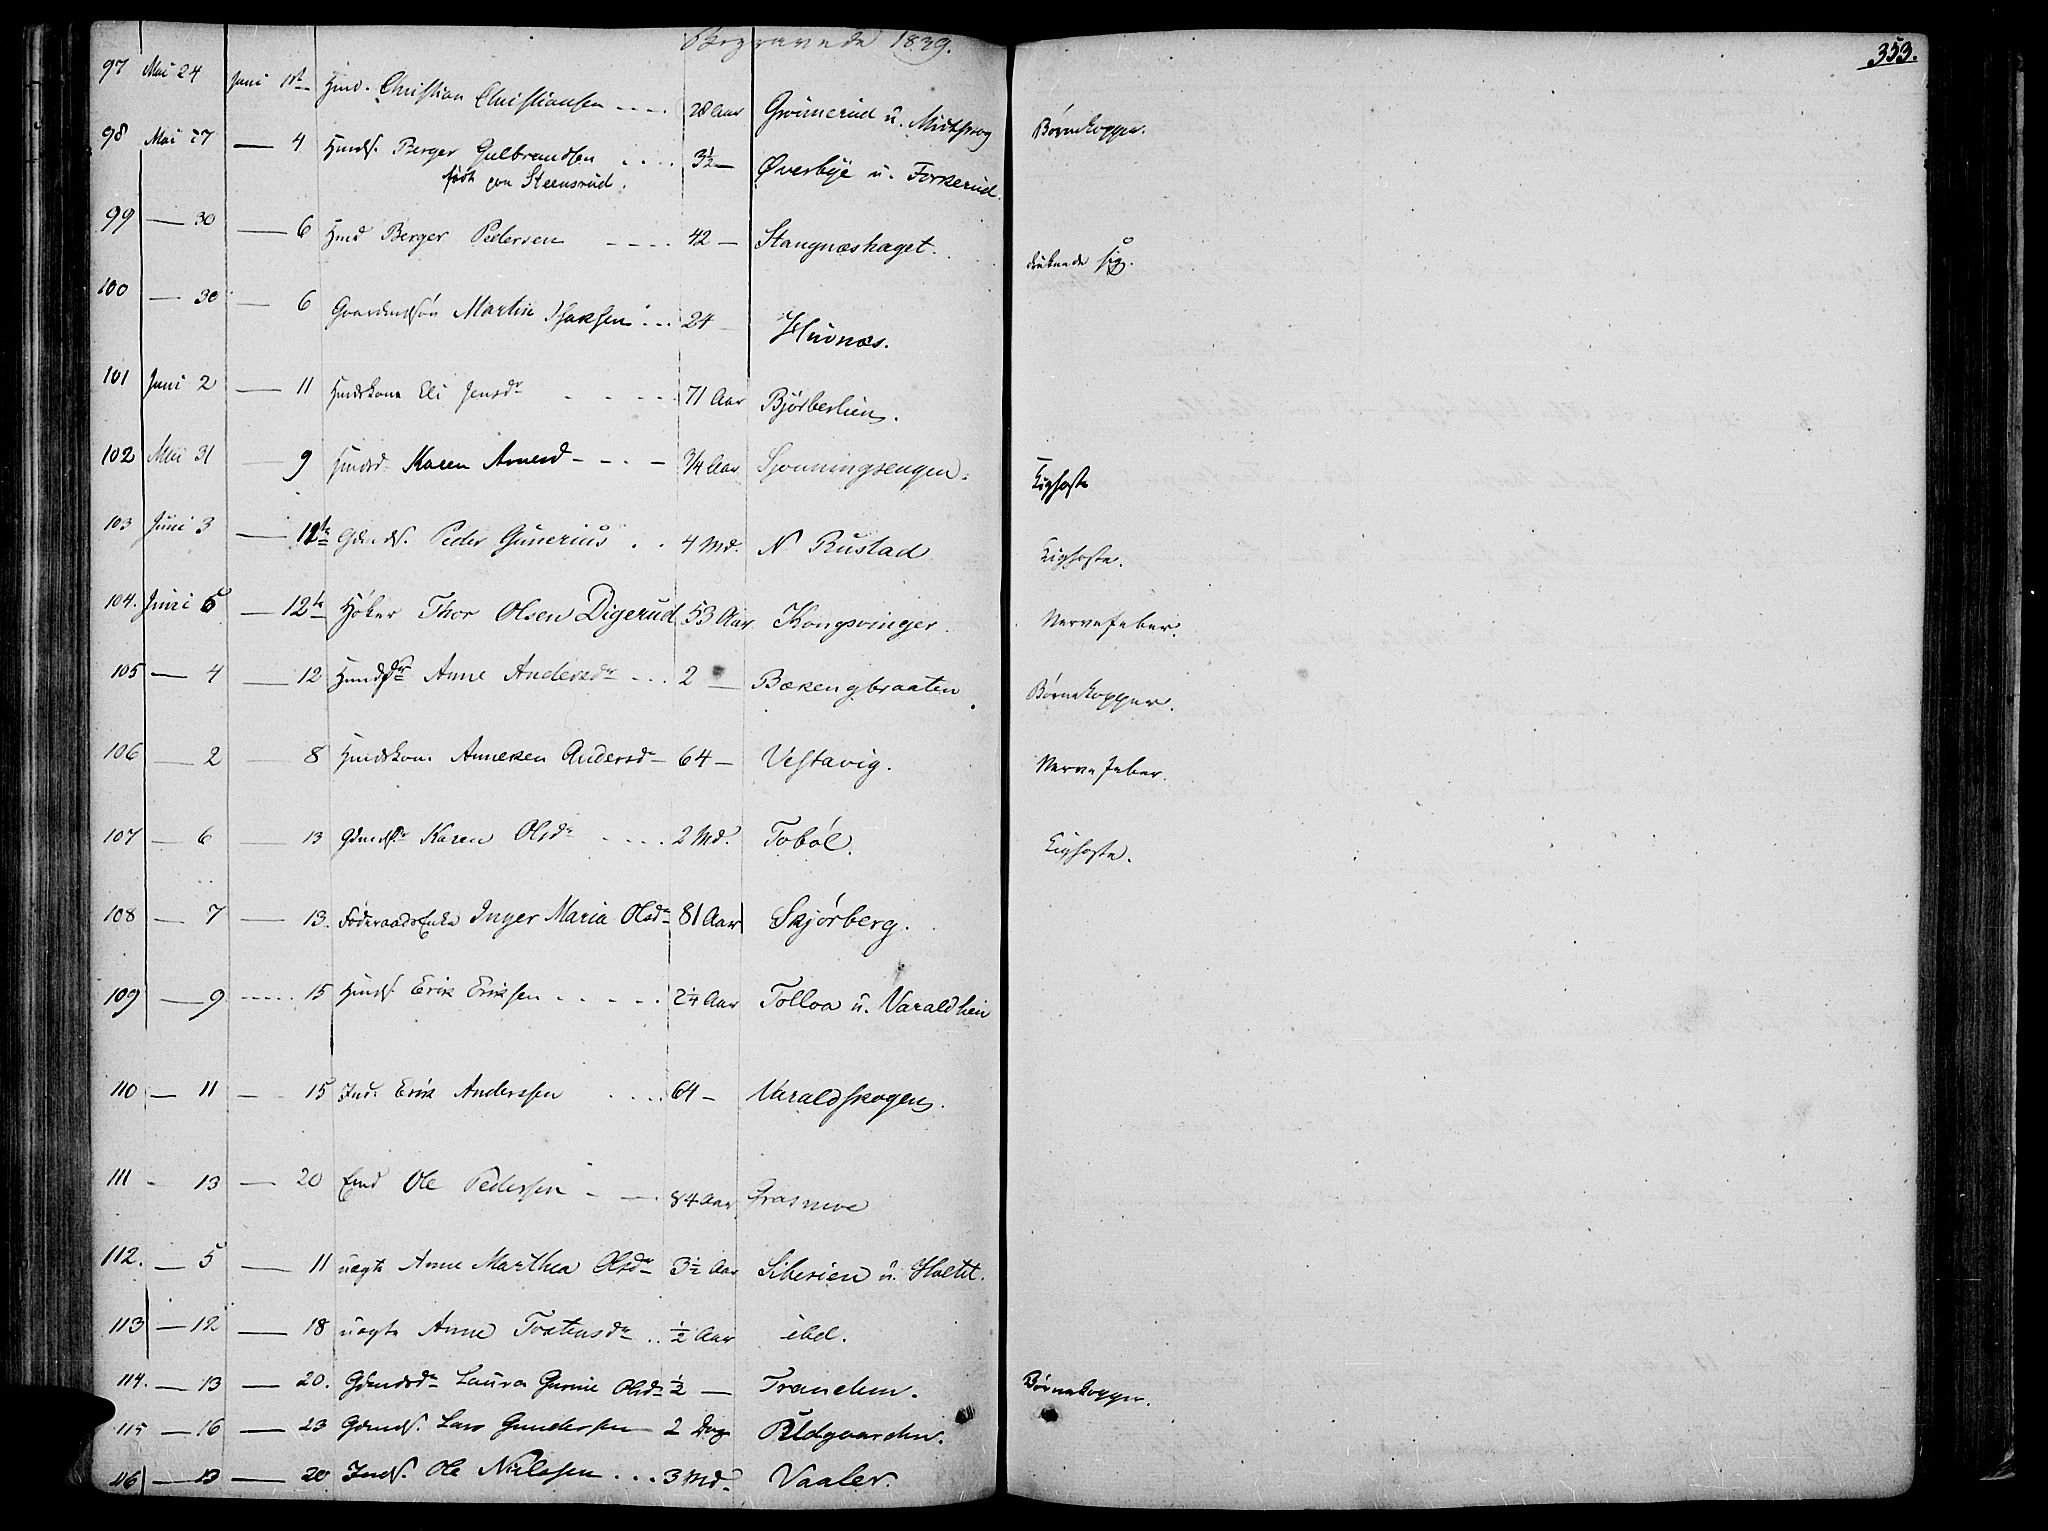 Begravede 1839.
353.
97 Mai 24 Juni 1st Hmd. Christian Christiansen - - - - 28 Aar Grønnerud u. Midtskog Børnekopper.
98 Mai 27 — 4 Hmds. Berger Gulbrandsen . . . . 3½ — Øverbye u. Forkerud.
født paa Steensrud.
99 — 30 — 6 Hmd Berger Pedersen - - - - 42 — Stangnæshaget. druknede sig.
100 — 30 — 6 Gaardmdsøn Martin Isaksen . . . 24 — Huvnæs.
101 Juni 2 — 11 Hmdskone Eli Jensdr - - - - - 71 Aar Bjørberlien.
102 Mai 31 — 9 Hmdsd. Karen Arnesd - - . - ¾ Aar Sjønningsengen. Kighoste
103 Juni 3 — 12te Gdmds. Peder Gunerius . . 4 Md. N Rustad Kighoste.
104. Juni 5 — 12te Høker Thor Olsen Digerud 53 Aar Kongsvinger. Nervefeber.
105 — 4 — 12 Hmdsdr Anne Andersdr - - - 2 — Bækengbraaten. Børnekopper.
106 — 2 — 8 Hmdskone Anneken Andersdr 64 — Vestavig. Nervefeber.
107 — 6 — 13 Gdmdsdr Karen Olsdr - - - - 2 Md. Tobøl. Kighoste.
108 — 7 — 13. FøderaadsEnke Inger Maria Olsdr 81 Aar Skjørberg.
109 — 9 - - - - - 15 Hmds. Erik Eriksen - - - - - 2¼ Aar Tolloa u. Varaldlien
110 — 11 — 15 Ind. Erik Anderssen . . . . . 64 — Varaldskogen.
111 - 13 — 20 Ole Pedersen - - - 84 Aar Grasmoe
112. — 5 — 11 uægte Anne Marthea Olsdr 3½ Aar Siberien u. Holtet.
113 — 12 — 18 uægte Anne Tostensdr . . ½ Aar ibd.
114. — 13 — 20. Gdmdsdr Laura Gurine Olsdr ½ — Tranchen. Børnekopper.
115 — 16 — 23 Gdmds. Lars Gundersen 2 Dag Ridgaarden.
116 — 13 — 20 Inds. Ole Nielssen . . . 3 Md. Vaaler.